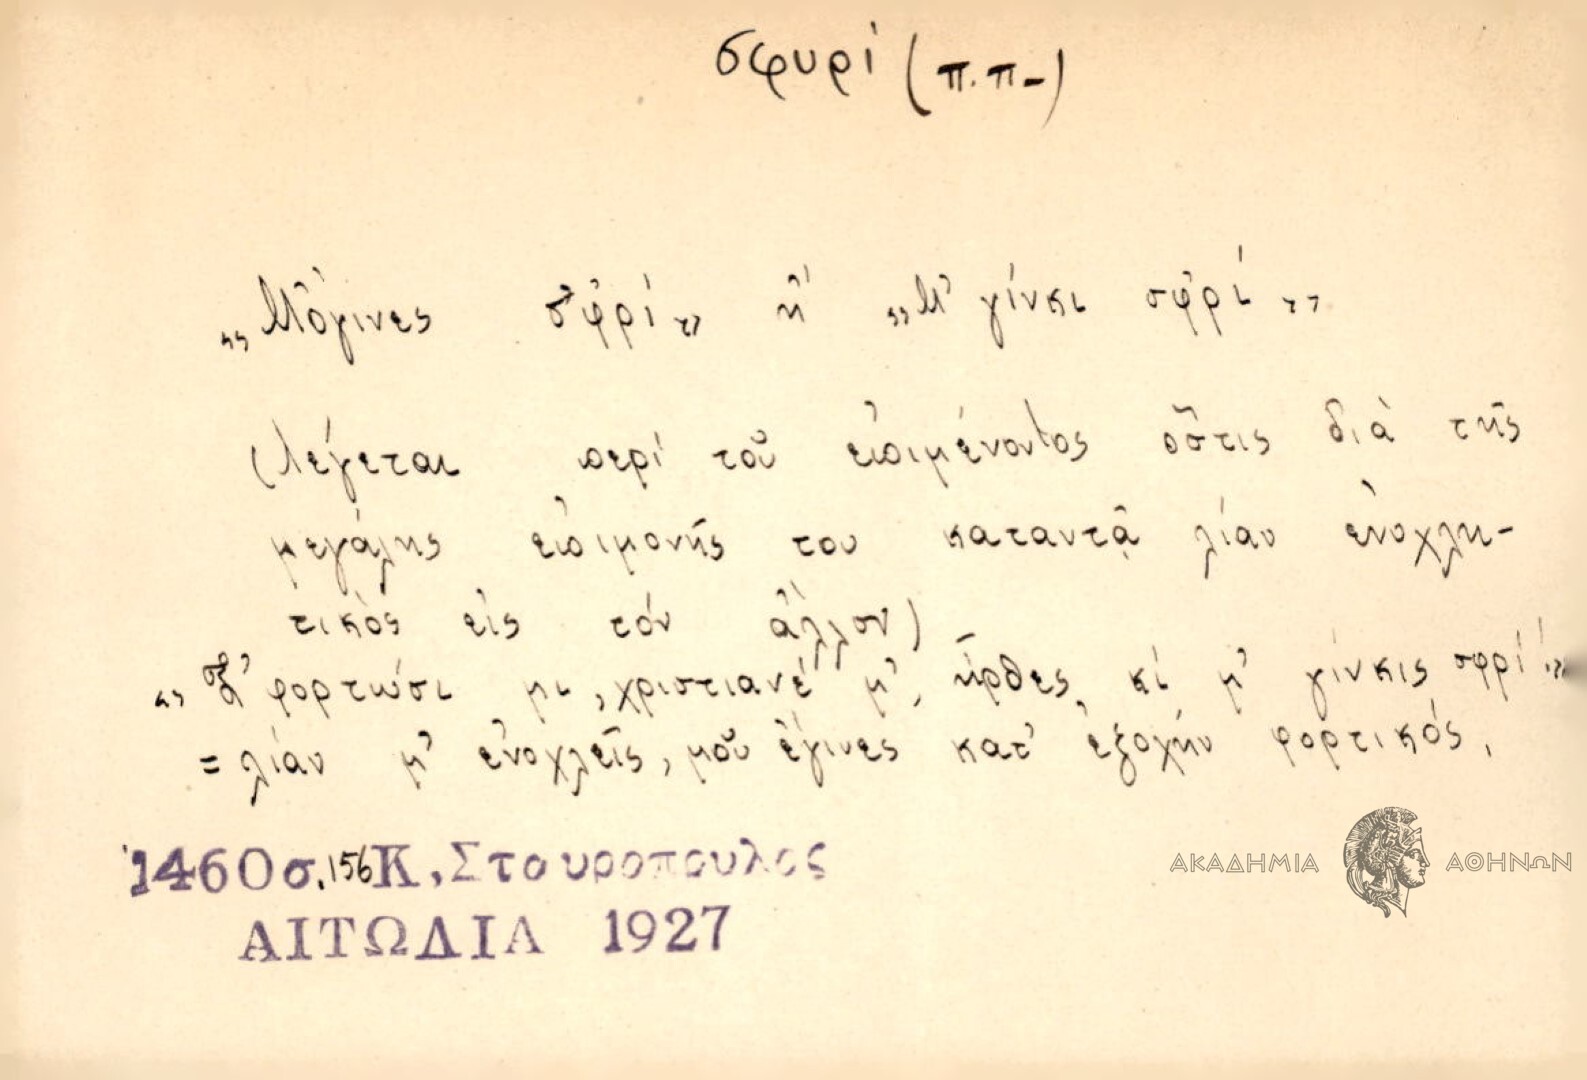 σφυρί (π.π-)
„Μὄγινες σφ'ρί„ ἤ „Μ' γίνκι σφ'ρί„
(Λέγεται περί τοῦ ἐπιμένοντος ὅστις διὰ τῆς
μεγάλης ἐπιμονῆς του καταντᾷ λίαν ἐνοχλη-
τικὸς εἰς τόν ἄλλον)
φορτώσι μι, χριστιανέ μ', ἦρθες κί μ' γίνκις σφρί„
= λίαν μ' ἐνοχλεῖς, μοῦ ἔγινες κατ' ἐξοχήν φορτικός.
1460 σ. 156 Κ. Σταυροπουλος
ΑΙΤΩΔΙΑ 1927
ΑΚΑΔΗΜΙΑ ΑΘΗΝΩΝ